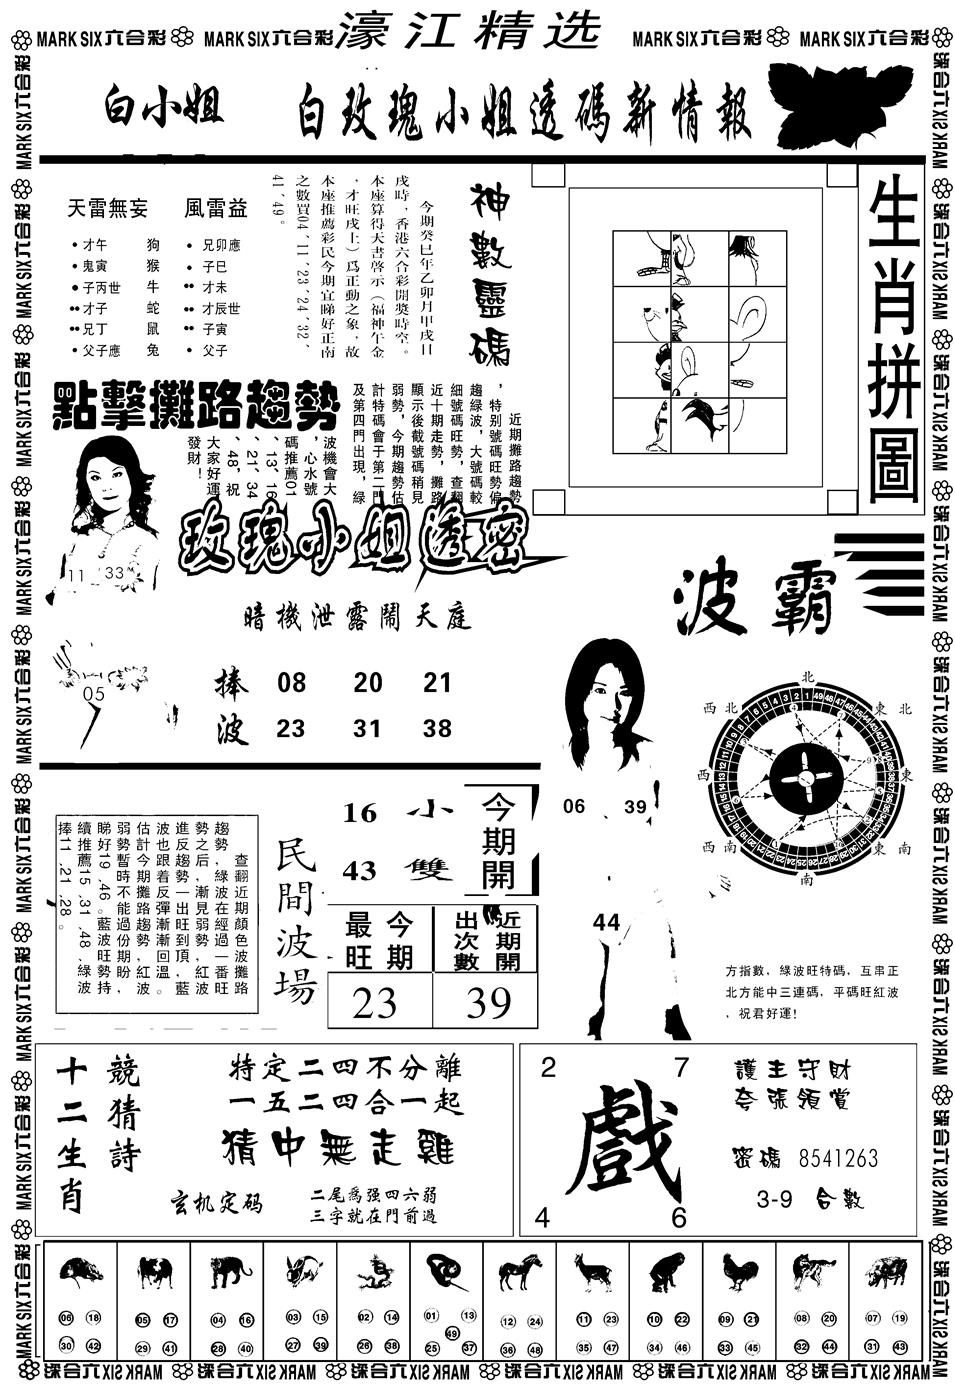 MARK SIX六合彩 MARK SIX六合彩 濠江精选 MARK SIX六合彩 MARK SIX六合彩
白小姐 白玫瑰小姐透碼新情報
天雷無妄 風雷益
•才午 狗 •兄卯應
•鬼寅 猴 •子巳
•子丙世 牛 ••才未
••才子 蛇 ••才辰世
••兄丁 鼠 ••子寅
•父子應 兔 •父子
神數靈碼
今期癸巳年乙卯月甲戌日
戌時，香港六合彩開獎時空。
本座算得天書啓示（福神午金
，才旺戌土）爲正動之象，故
本座推薦彩民今期宜睇好正南
之數買04、11、23、24、32、
41、49。
生肖拼圖
點擊攤路趨勢
近期攤路趨勢
，特别號碼旺勢偏
趨綠波，大號碼較
細號碼旺勢，查翻
近十期走勢，攤路
顯示後截號碼稍見
弱勢，今期趨勢估
計特碼會于第二門
及第四門出現，綠
波機會大
，心水號
碼推薦01
、13、16
、21、34
、48，祝
大家好運
發財！
11 33
05
玫瑰小姐透密
暗機泄露鬧天庭
捧 08 20 21
波 23 31 38
波霸
北
西北 東北
西 東
西南 東南
南
06 39
44
方指數，綠波旺特碼，互串正
北方能中三連碼，平碼旺紅波
，祝君好運！
查翻近期顏色波攤路
趨勢，綠波在經過一番旺
勢之后，漸見弱勢，紅波
進反趨勢一出旺到頂，藍
波也跟着反彈漸漸回溫。
估計今期攤路趨勢紅波
弱勢暫時不能過份期盼，
睇好19、46。藍波旺勢持
續推薦15、31、48、綠波
捧11、21、28。
民間波場
16 小 今期開
43 雙
最旺 今期 出次數 近期開
23 39
十二生肖
競猜詩
特定二四不分離
一五二四合一起
猜中無走雞
玄机定码
二尾爲强四六弱
三字就在門前過
2 7
戲
4 6
護主守財
夸張領賞
密碼 8541263
3-9 合數
06 18 05 17 04 16 03 15 02 14 01 13 12 24 11 23 10 22 09 21 08 20 07 19
49
30 42 29 41 28 40 27 39 26 38 25 37 36 48 35 47 34 46 33 45 32 44 31 43